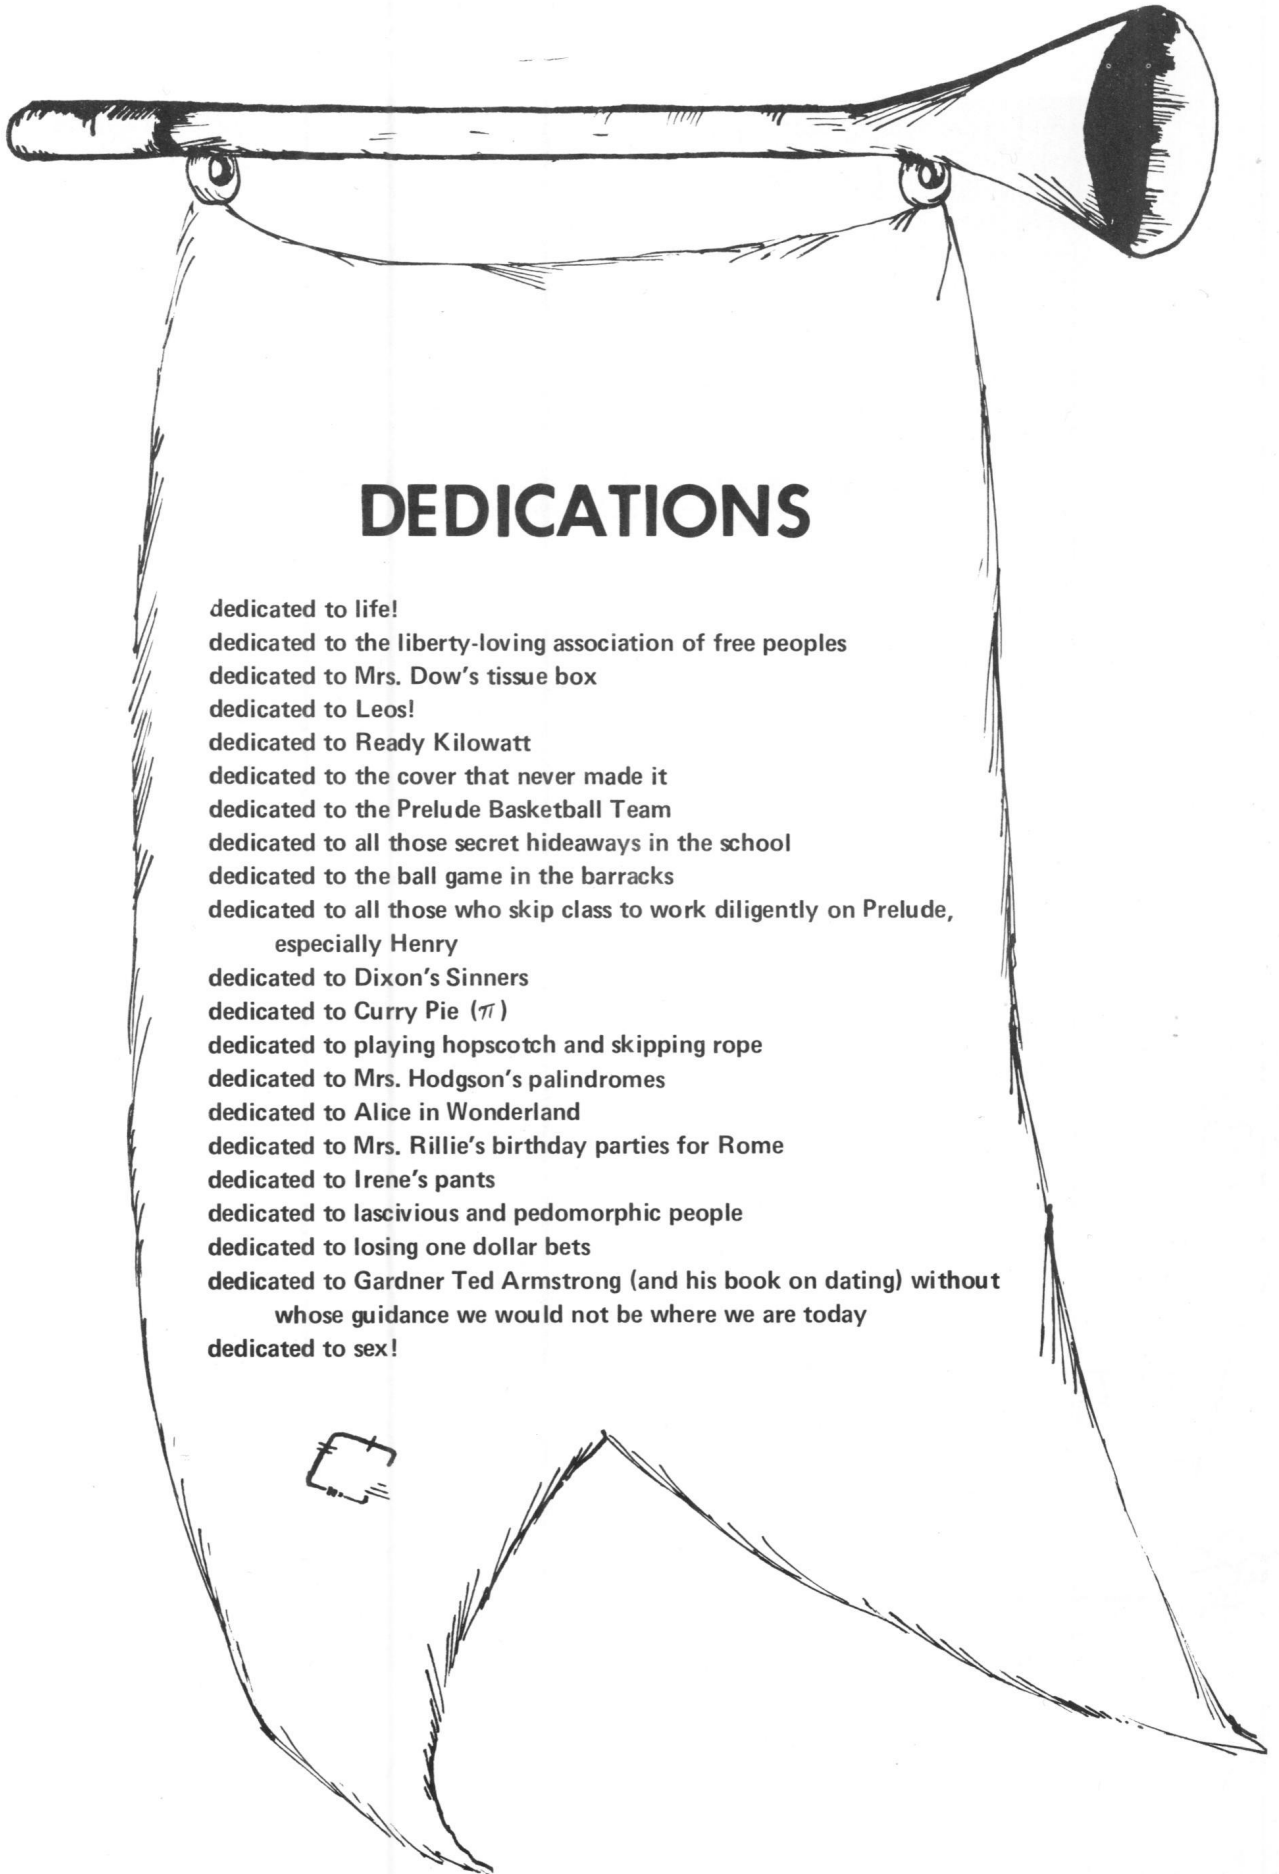 DEDICATIONS
dedicated to life!
dedicated to the liberty-loving association of free peoples
dedicated to Mrs. Dow's tissue box
dedicated to Leos!
dedicated to Ready Kilowatt
dedicated to the cover that never made it
dedicated to the Prelude Basketball Team
dedicated to all those secret hideaways in the school
dedicated to the ball game in the barracks
dedicated to all those who skip class to work diligently on Prelude,
especially Henry
dedicated to Dixon's Sinners
dedicated to Curry Pie (π)
dedicated to playing hopscotch and skipping rope
dedicated to Mrs. Hodgson's palindromes
dedicated to Alice in Wonderland
dedicated to Mrs. Rillie's birthday parties for Rome
dedicated to Irene's pants
dedicated to lascivious and pedomorphic people
dedicated to losing one dollar bets
dedicated to Gardner Ted Armstrong (and his book on dating) without
whose guidance we would not be where we are today
dedicated to sex!